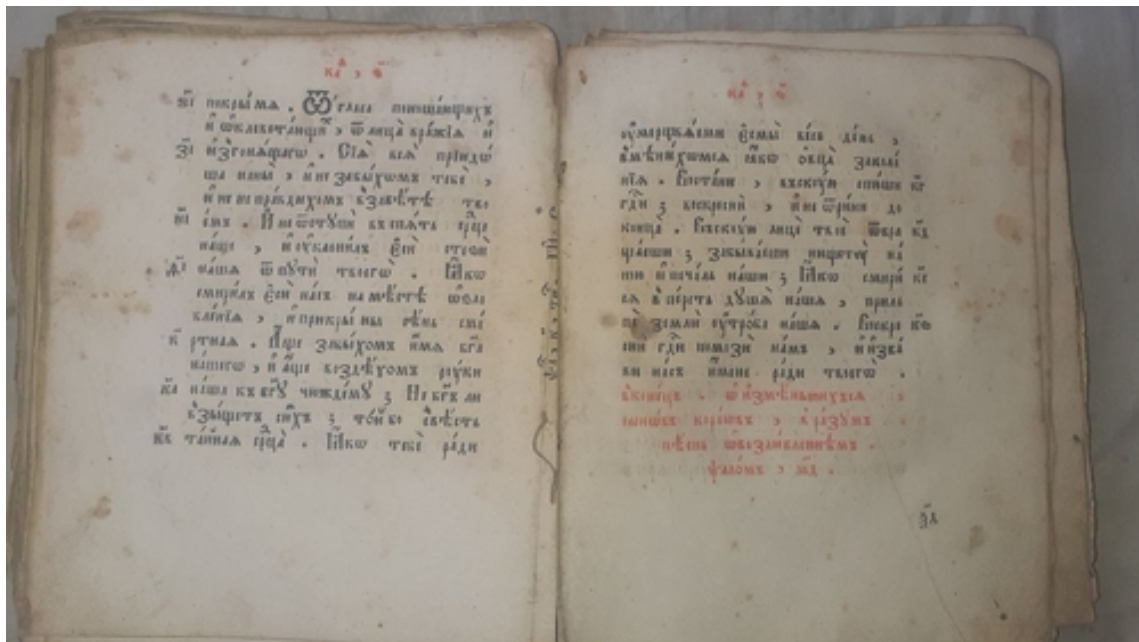 каѳ , ѕ
з҃і покры́ мѧ . Ѿ гла́са поноша́ющихъ
и҆ ѡ҆клевета́ющи , ѿ лица̀ вра́жїѧ и҆
з҃і и҆згонѧ́щагѡ . Сїѧ̀ всѧ̀ прїидо́
ша на ны̀ , и҆ не забы́хомъ тебє̀ ,
и҆ не непра́вдихомъ в̾ завѣ́тѣ тво
и҃і є҆́мъ . И҆ не ѿступѝ въспѧ́ть се́рдце
на́ше , и҆ ᲂу҆клони́лъ є҆сѝ стезѝ
ѳ҃і на́шѧ ѿ пꙋтѝ твоегѡ̀ . Ꙗ҆́кѡ
смири́лъ є҆сѝ на́съ на мѣ́стѣ ѡ҆ѕло
бле́нїѧ , и҆ прикры́ ны сѣ́нь сме́
к҃ ртнаѧ . А҆́ще забы́хомъ и҆́мѧ бг҃а
на́шегѡ , и҆ а҆́ще воздѣ́хомъ рꙋ́ки
к҃а на́ша къ бг҃ꙋ чюжде́мꙋ ; Не бг҃ъ ли
в̾зы́щетъ си́хъ ; то́й бо свѣ́сть
к҃в та́йнаѧ се́рдца . Ꙗ҆́кѡ тебє̀ ра́ди
каѳ , ѕ
ᲂу҆мерщвлѧ́еми є҆смы̀ ве́сь де́нь ,
в̾мѣни́хомсѧ ꙗ҆́кѡ ѻ҆́вца заколе́
нїѧ . Воста́ни , въскꙋ́ю спи́ши к҃г
гд҇и ; воскреснѝ , и҆ не ѿри́ни до
конца̀ . Въскꙋ́ю лицѐ твоѐ ѿвра к҃д
ща́еши ; забыва́еши нищетꙋ̀ на́
шꙋ и҆ печа́ль на́шꙋ ; Ꙗ҆́кѡ смири́ к҃є
сѧ в̾ пе́рсть дꙋша̀ на́ша , прильпѐ
землѝ ᲂу҆тро́ба на́ша . Воскр҇нѝ к҃ѕ
гд҇и помозѝ на́мъ , и҆ и҆зба́
ви на́съ и҆́мене ра́ди твоегѡ̀ .
в̾коне́цъ . ѡ҆ и҆змѣнꙗ́ющихсѧ ,
сыно́мъ коре́ѡмъ , в̾ ра́зꙋмъ .
пѣ́снь ѡ҆ возлю́бленнѣмъ .
ѱало́мъ , м҃д .